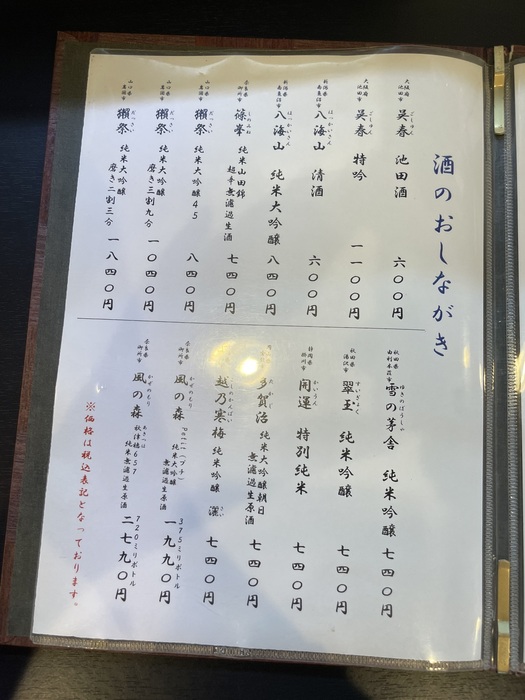 酒のおしながき
大阪府池田市 呉春 ごしゅん 池田酒 六〇〇円
大阪府池田市 呉春 ごしゅん 特吟 一一〇〇円
新潟県南魚沼市 八海山 はっかいさん 清酒 六〇〇円
新潟県南魚沼市 八海山 はっかいさん 純米大吟醸 八四〇円
奈良県御所市 篠峯 しのみね 純米山田錦 超辛無濾過生酒 七四〇円
山口県岩国市 獺祭 だっさい 純米大吟醸45 八四〇円
山口県岩国市 獺祭 だっさい 純米大吟醸 磨き三割九分 一〇四〇円
山口県岩国市 獺祭 だっさい 純米大吟醸 磨き二割三分 一八四〇円
秋田県由利本荘市 雪の茅舎 ゆきのぼうしゃ 純米吟醸 七四〇円
秋田県湯沢市 翠玉 すいぎょく 純米吟醸 七四〇円
静岡県掛川市 開運 かいうん 特別純米 七四〇円
多賀治 たかじ 純米大吟醸朝日 無濾過生原酒 七四〇円
越乃寒梅 純米吟醸 灑 七四〇円
奈良県御所市 風の森 かぜのもり 純米大吟醸 無濾過生原酒 375ミリボトル 一九九〇円
奈良県御所市 風の森 かぜのもり 秋津穂657 あきつほ 純米無濾過生原酒 720ミリボトル 二七九〇円
※価格は税込表記となっております。